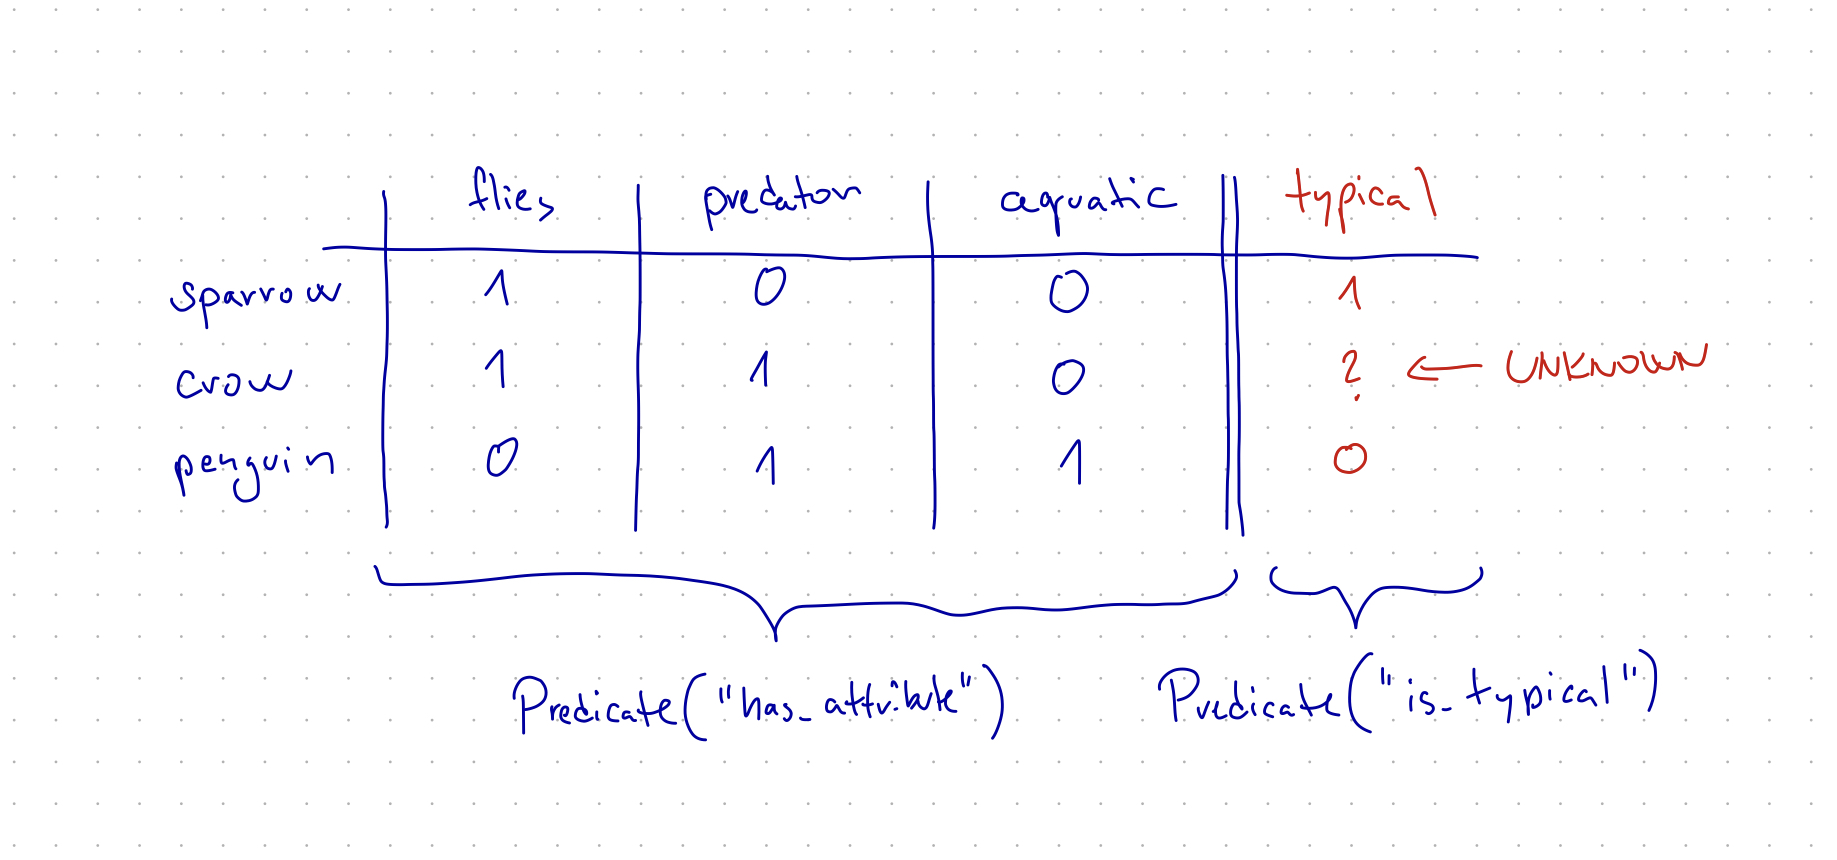 flies predator aquatic typical
sparrow 1 0 0 1
crow 1 1 0 ? ← UNKNOWN
penguin 0 1 1 0
Predicate("has_attribute") Predicate("is_typical")